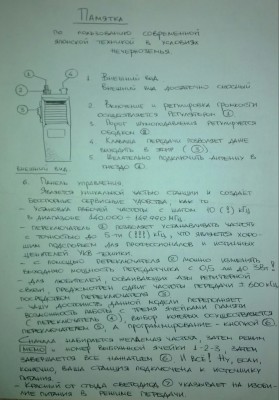 Памятка
по пользованию современной
японской техникой в условиях
нечерноземья.
1 Внешний вид
Внешний вид достаточно сносный
2. Включение и регулировка громкости
осуществляется регулятором ②
3. Порог шумоподавления регулируется
ободком ③
4. Клавиша передачи позволяет даже
выходить в эфир (⑤)
5. Желательно подключить антенну в
гнездо ④.
Внешний вид
6. Панель управления
Является уникальной частью станции и создаёт
бесспорные сервисные удобства, как то
- установка рабочей частоты с шагом 10 (!) кГц
в диапазоне 140.000 -
- переключатель позволяет устанавливать частоту
с точностью до 5-ти (!!!) кГц, что является хоро-
шим подспорьем для профессионалов и истинных
ценителей УКВ-техники.
- с помощью переключателя можно изменять
выходную мощность передатчика с 0,5 до 5 Вт!
- для любителей, осваивающих азы репитерной
связи, предусмотрен сдвиг частоты передачи ± 600 кГц
посредством переключателя
- часы достоинств данной модели переполняет
возможность работы с тремя ячейками памяти
(переключатель), выбор которых осуществляется
переключателем, а программирование - кнопкой
Сначала набирается желаемая частота, затем режим
MEMO, номер выбранной ячейки 1-2-3. Затем
завершается все нажатием. И всё! Ну, если,
конечно, ваша станция подключена к источнику
питания.
- красный от стыда светодиод указывает на изоби-
лие питания в режиме передачи